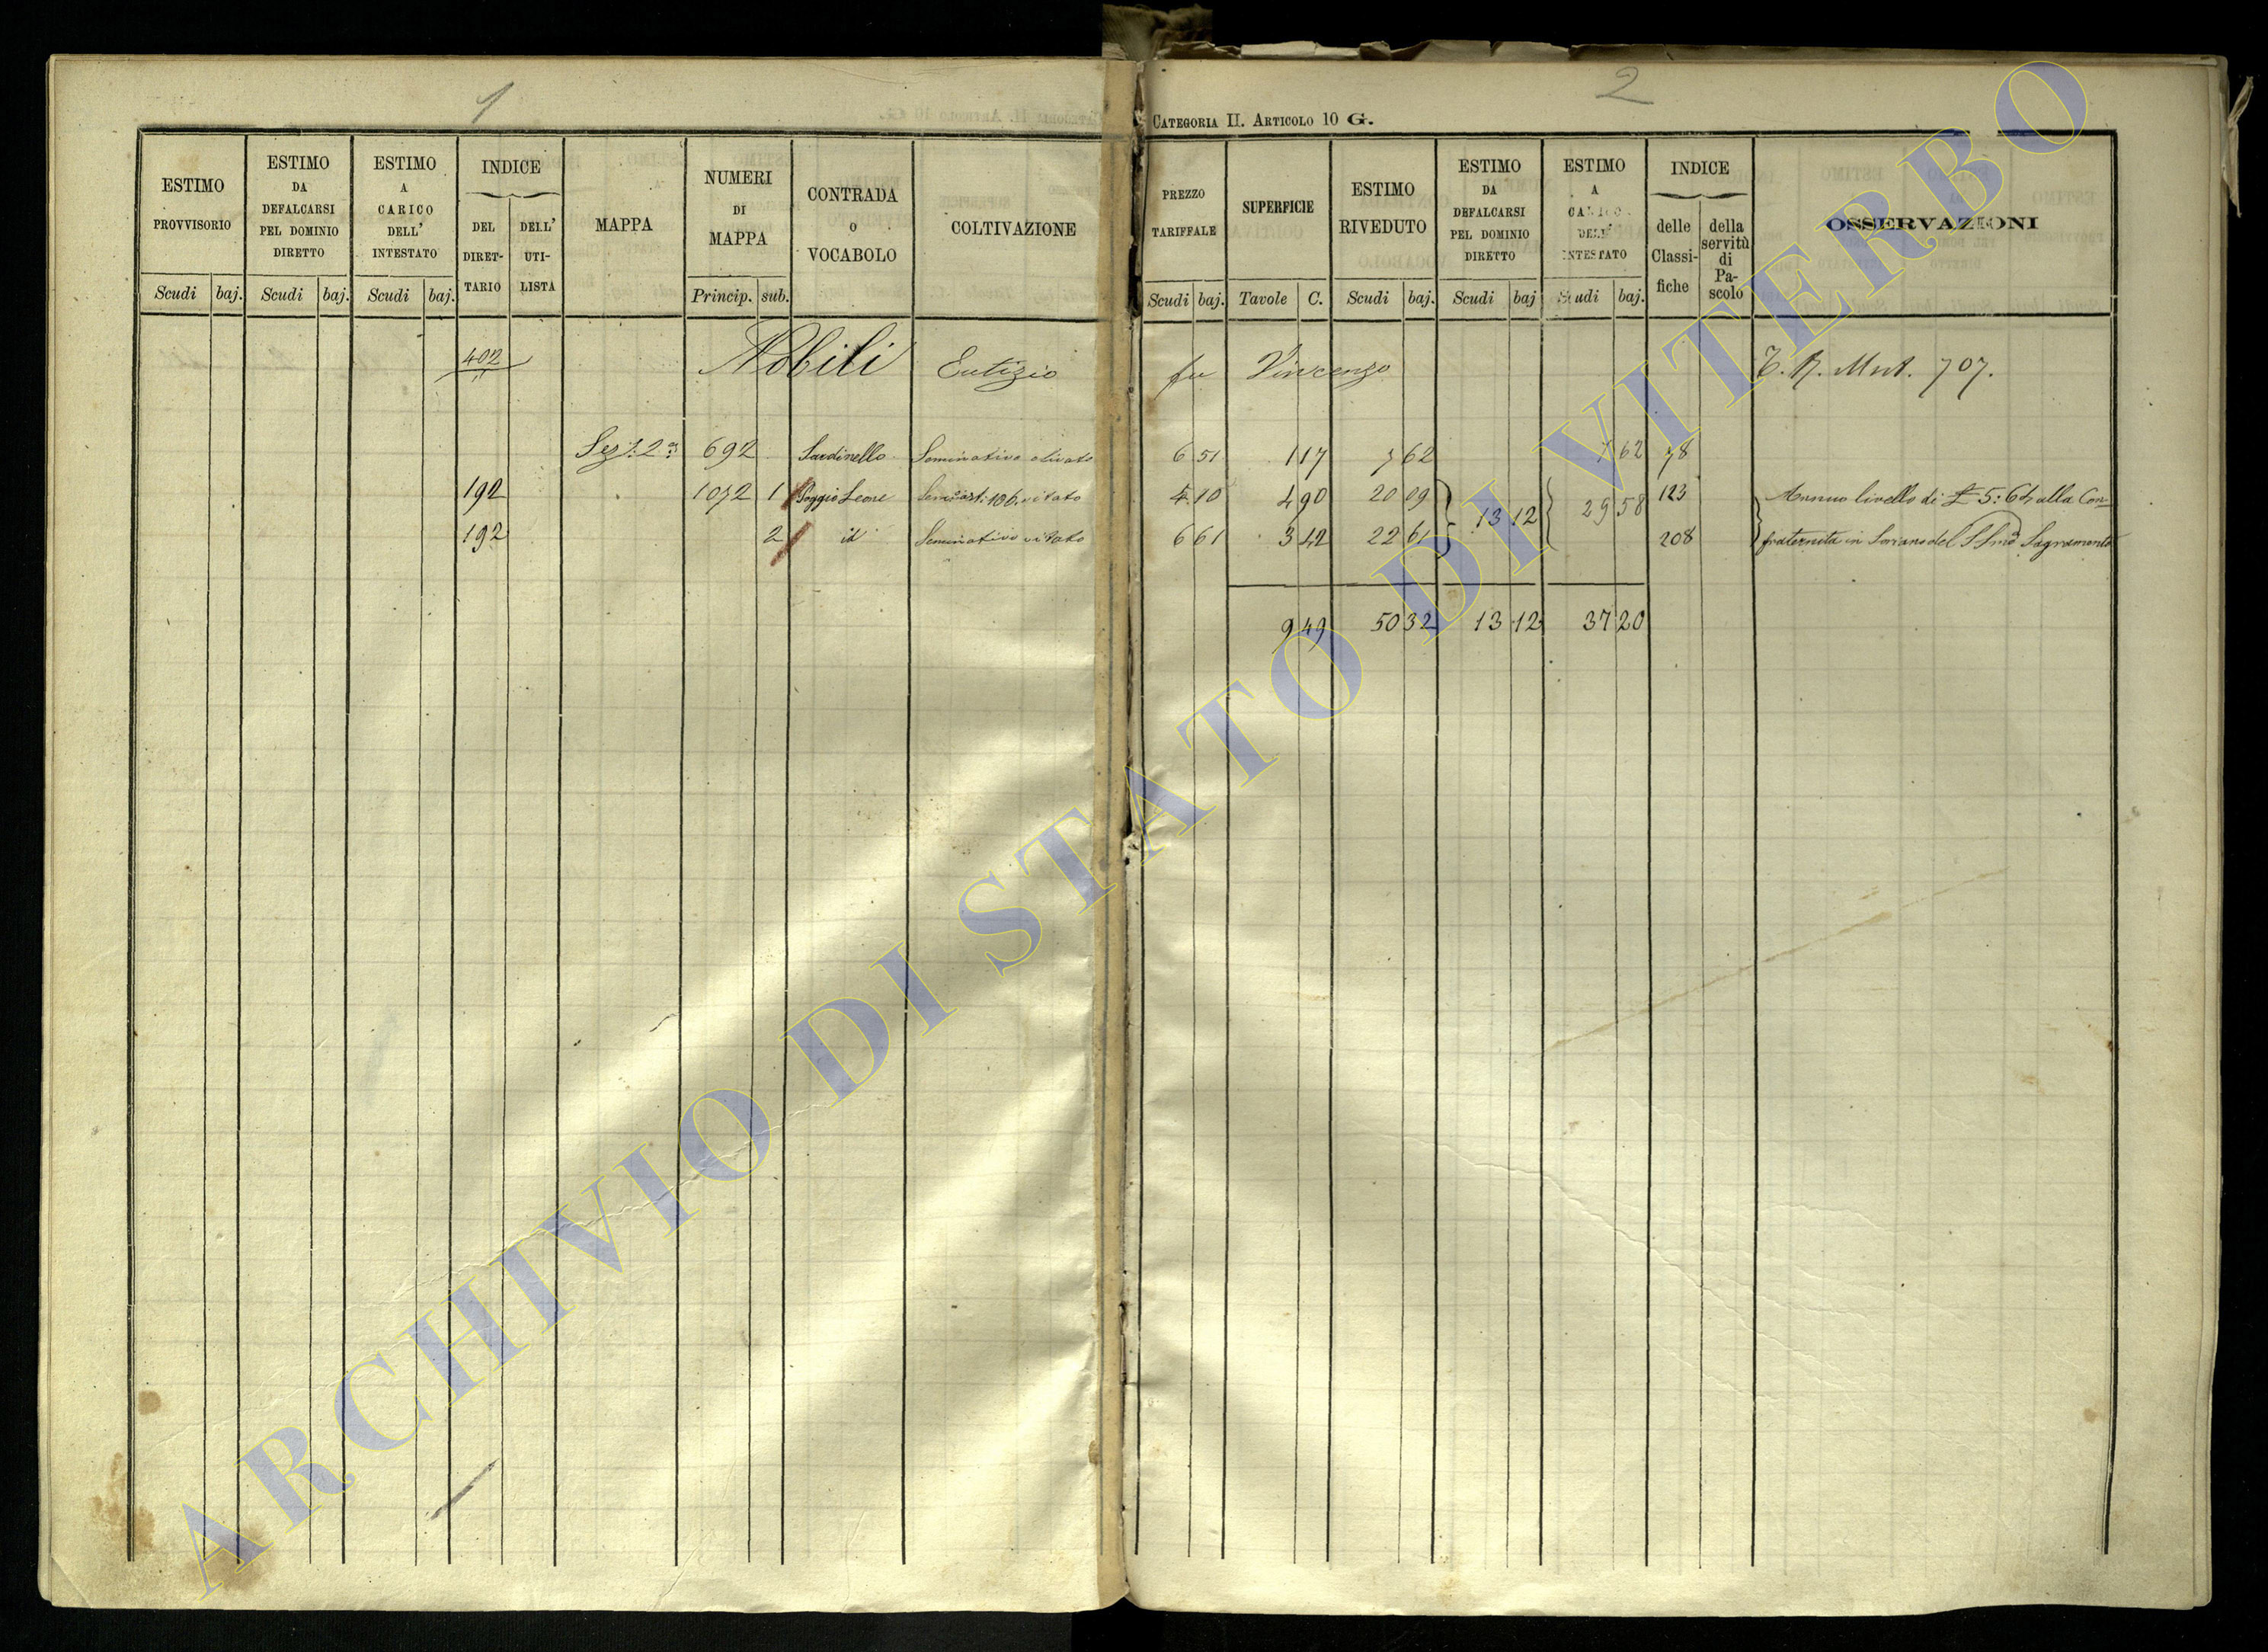 1
2
CATEGORIA II. ARTICOLO 10 G.
ESTIMO PROVVISORIO
Scudi baj.
ESTIMO DA DEFALCARSI PEL DOMINIO DIRETTO
Scudi baj.
ESTIMO A CARICO DELL' INTESTATO
Scudi baj.
INDICE
DEL DIRET-TARIO
DELL' UTI-LISTA
MAPPA
NUMERI DI MAPPA
Princip. sub.
CONTRADA O VOCABOLO
COLTIVAZIONE
PREZZO TARIFFALE
Scudi baj.
SUPERFICIE
Tavole C.
ESTIMO RIVEDUTO
Scudi baj.
ESTIMO DA DEFALCARSI PEL DOMINIO DIRETTO
Scudi baj
ESTIMO A CARICO DELL' INTESTATO
Scudi baj.
INDICE
delle Classi-fiche
della servitù di Pa-scolo
OSSERVAZIONI
402 Nobili Eutizio fu Vincenzo T. R. Mut. 707.
Sez: 2a 692 Sardinello Seminativo olivato 6 51 1 17 7 62 7 62 78
192 1072 1 Poggio Leone vitato 4 10 4 90 20 09 13 12 29 58 123 Annuo livello di £ 5:64 alla Con=
192 2 id Seminativo vitato 6 61 3 42 22 61 208 fraternita in Soriano del SSmo Sagramento
9 49 50 32 13 12 37 20
ARCHIVIO DI STATO DI VITERBO